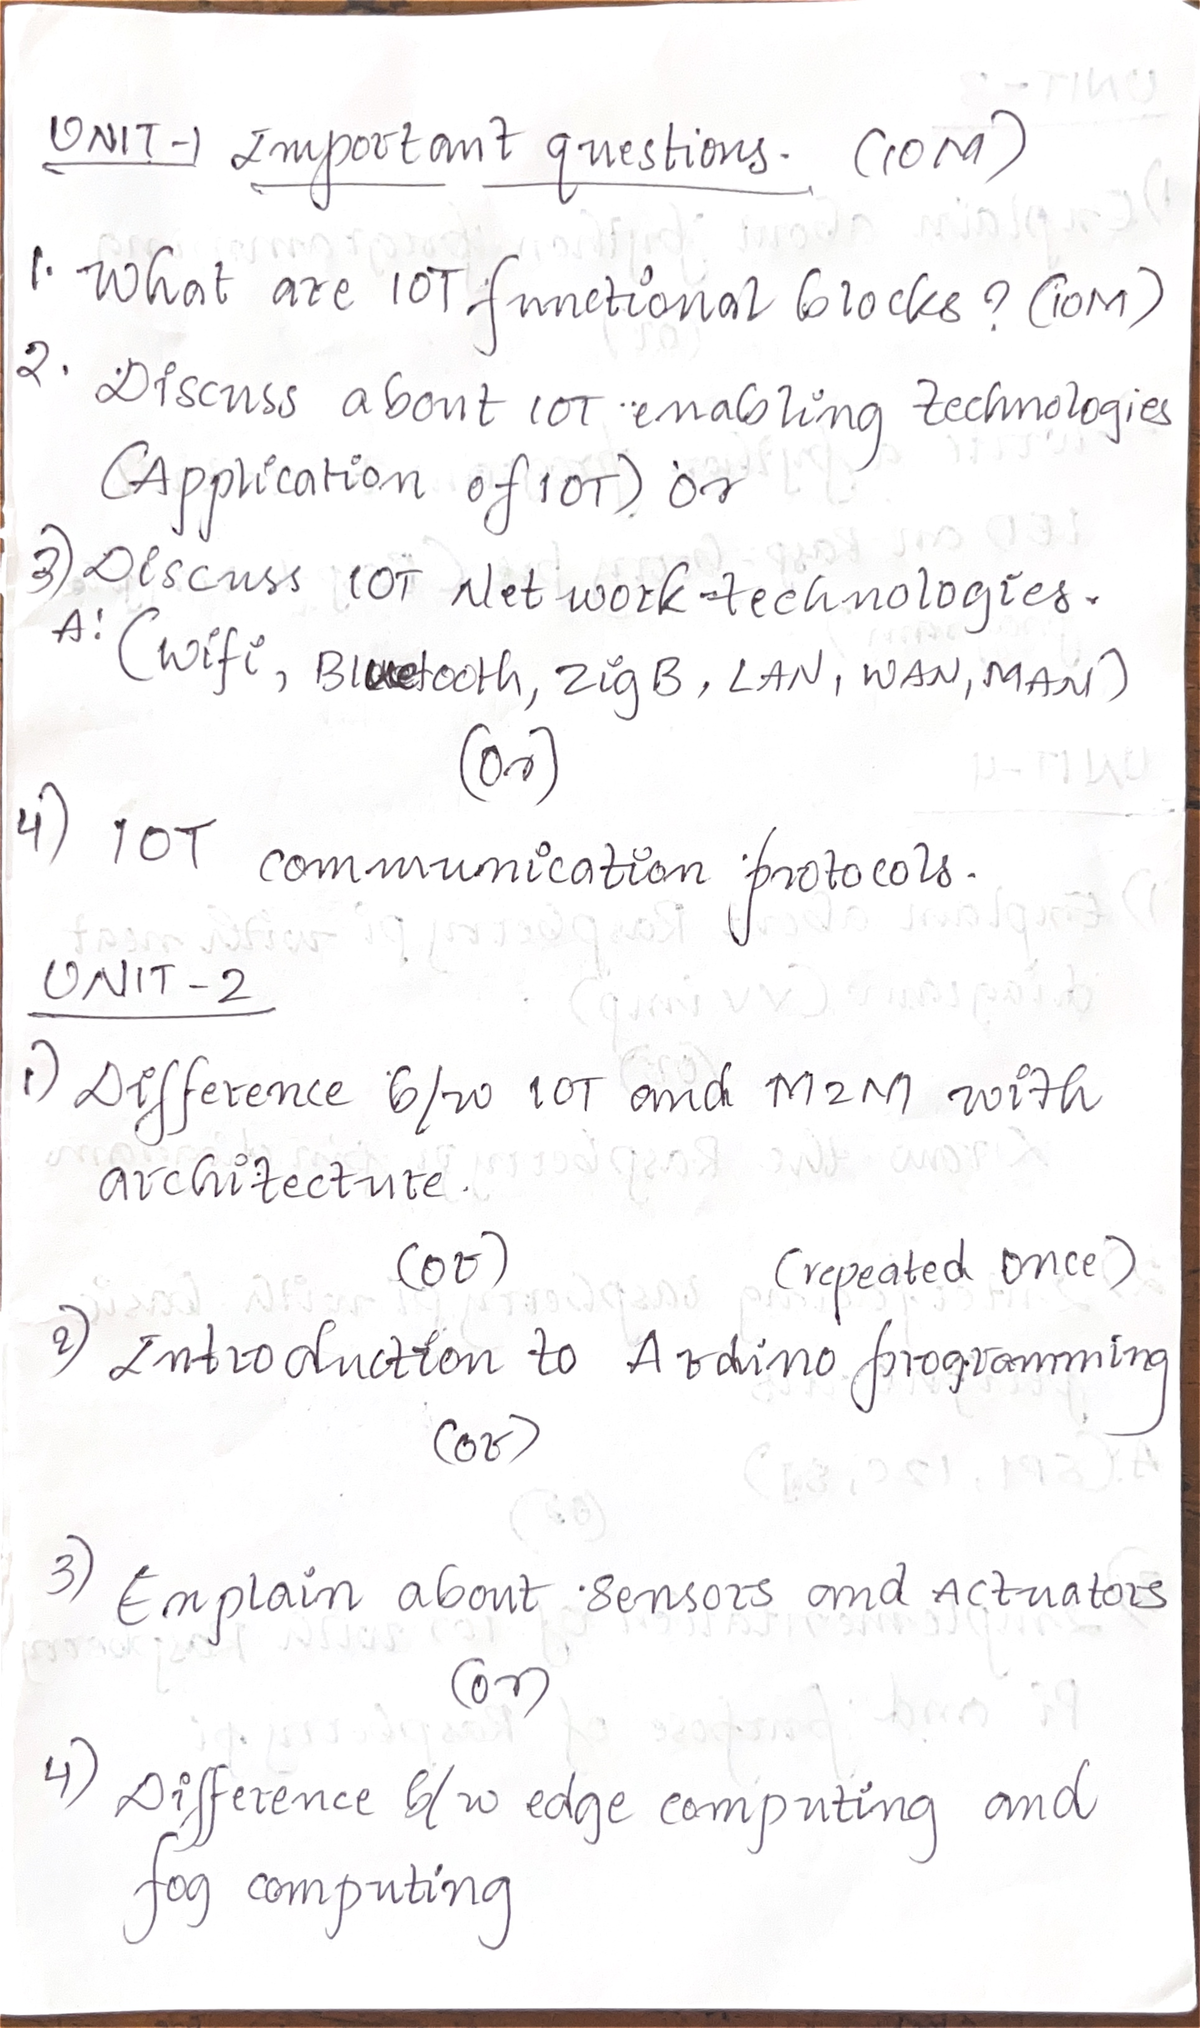 UNIT-1 Important questions. (10M)
1. What are IOT functional blocks? (10M)
2. Discuss about IOT enabling technologies
(Application of IOT) or
3) Discuss IOT Network technologies.
A: (Wifi, Bluetooth, ZigB, LAN, WAN, MAN)
(or)
4) IOT communication protocols.
UNIT-2
1) Difference b/w IOT and M2M with
architecture.
(or) (repeated once)
2) Introduction to Ardino programming
(or)
3) Explain about Sensors and Actuators
(or)
4) Difference b/w edge computing and
fog computing